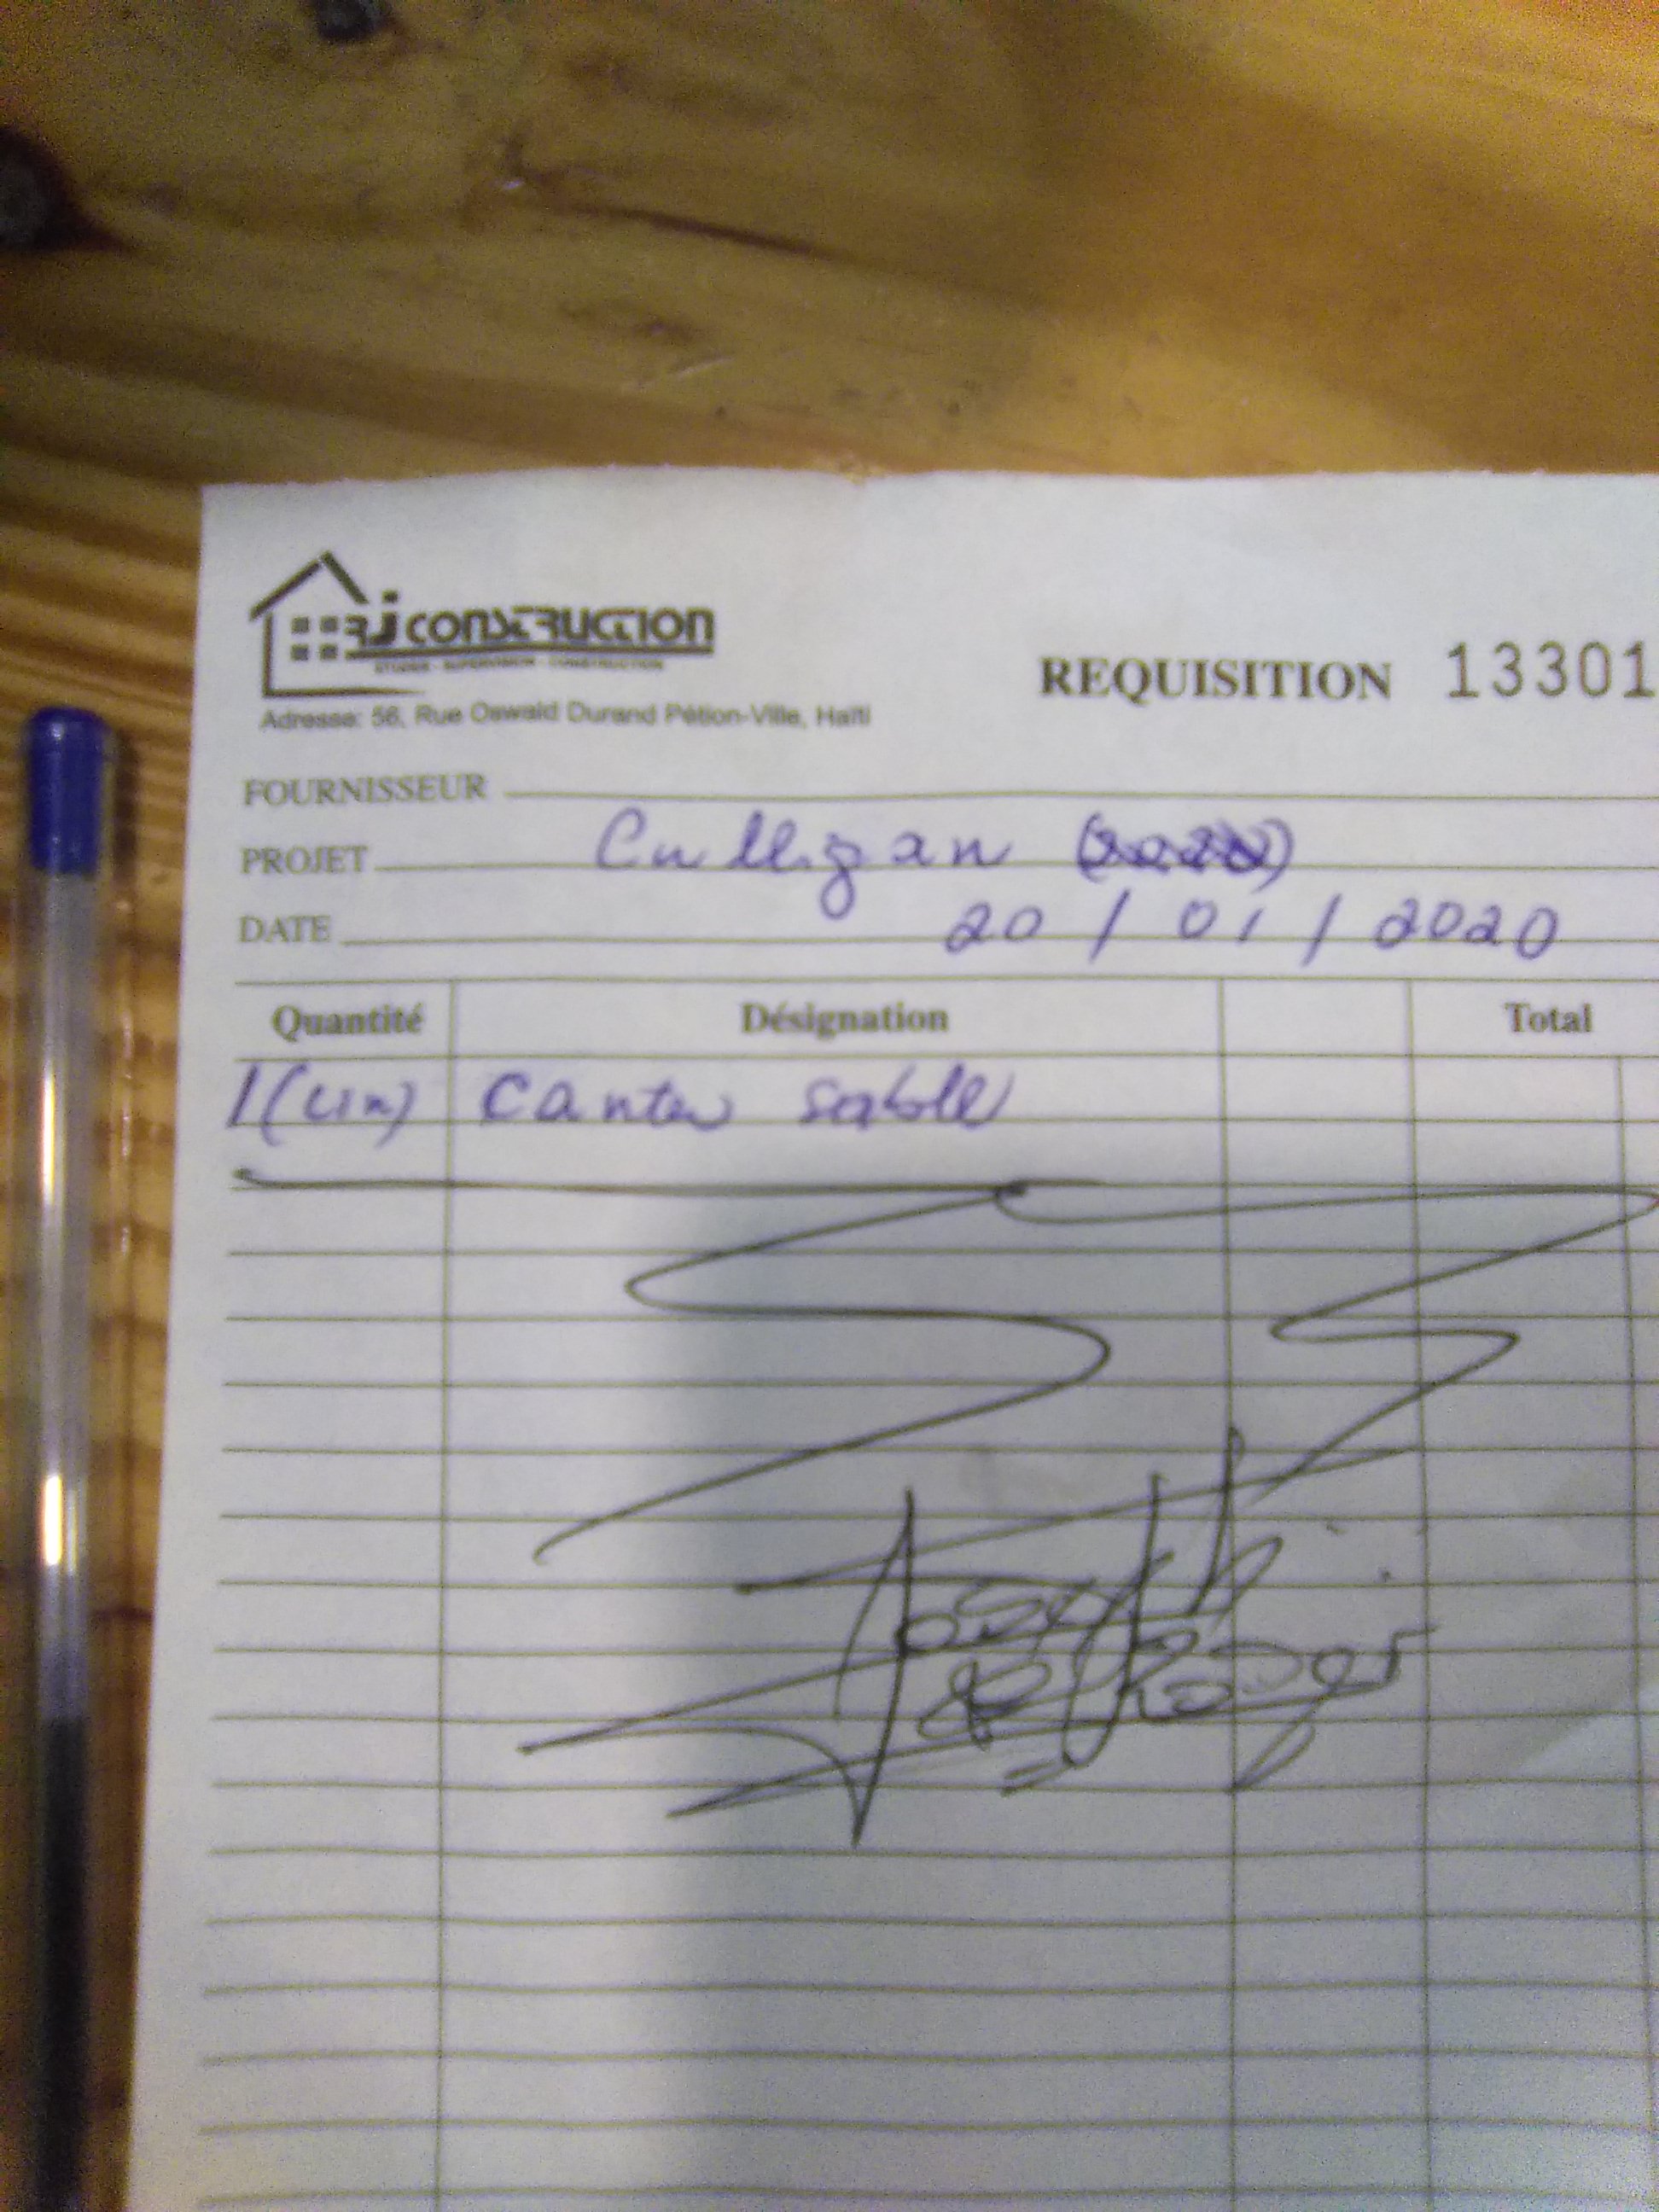 RJ CONSTRUCTION
ETUDES - SUPERVISION - CONSTRUCTION
Adresse: 56, Rue Oswald Durand Pétion-Ville, Haïti
REQUISITION 13301
FOURNISSEUR
PROJET Culligan
DATE 20 / 01 / 2020
Quantité Désignation Total
1(un) Canter sable
Joseph
Roger